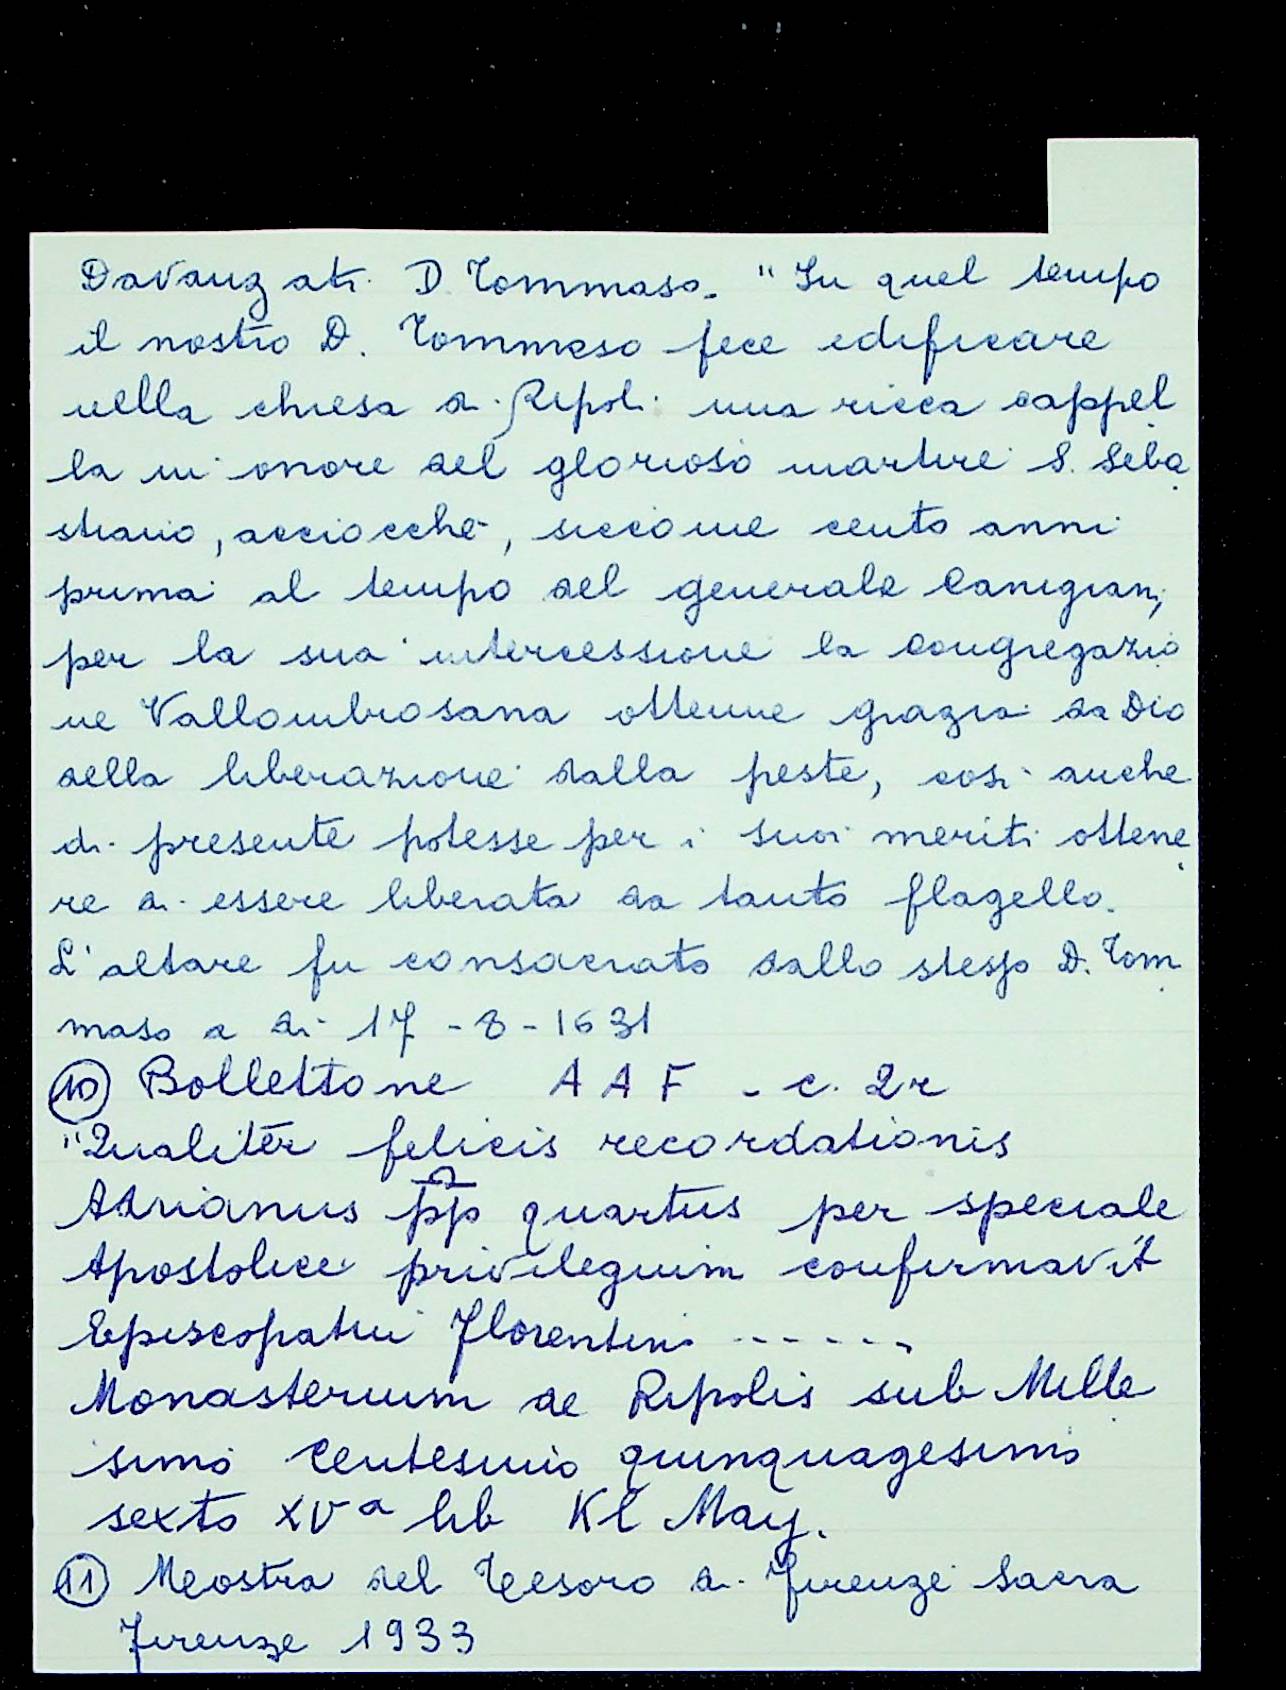 Davanzati D. Tommaso. "In quel tempo
il nostro D. Tommaso fece edificare
nella chiesa di Ripoli una ricca cappel
la in onore del glorioso martire S. Seba
stiano, acciocchè, siccome cento anni
prima al tempo del generale Canigiani,
per la sua intercessione la congregazio
ne Vallombrosana ottenne grazia da Dio
della liberazione dalla peste, così anche
di presente potesse per i suoi meriti ottene
re di essere liberata da tanto flagello.
L'altare fu consacrato dallo stesso D. Tom
maso a dì 17 - 8 - 1631
10 Bollettone A A F - c. 2r
"Qualiter felicis recordationis
Adrianus pp quartus per speciale
Apostolice privilegium confirmavit
Episcopatui Florentini ------
Monasterium de Ripolis sub Mille
simo Centesimo quinquagesimo
sexto XVa lib Kl May.
11 Mostra del Tesoro di Firenze Sacra
Firenze 1933